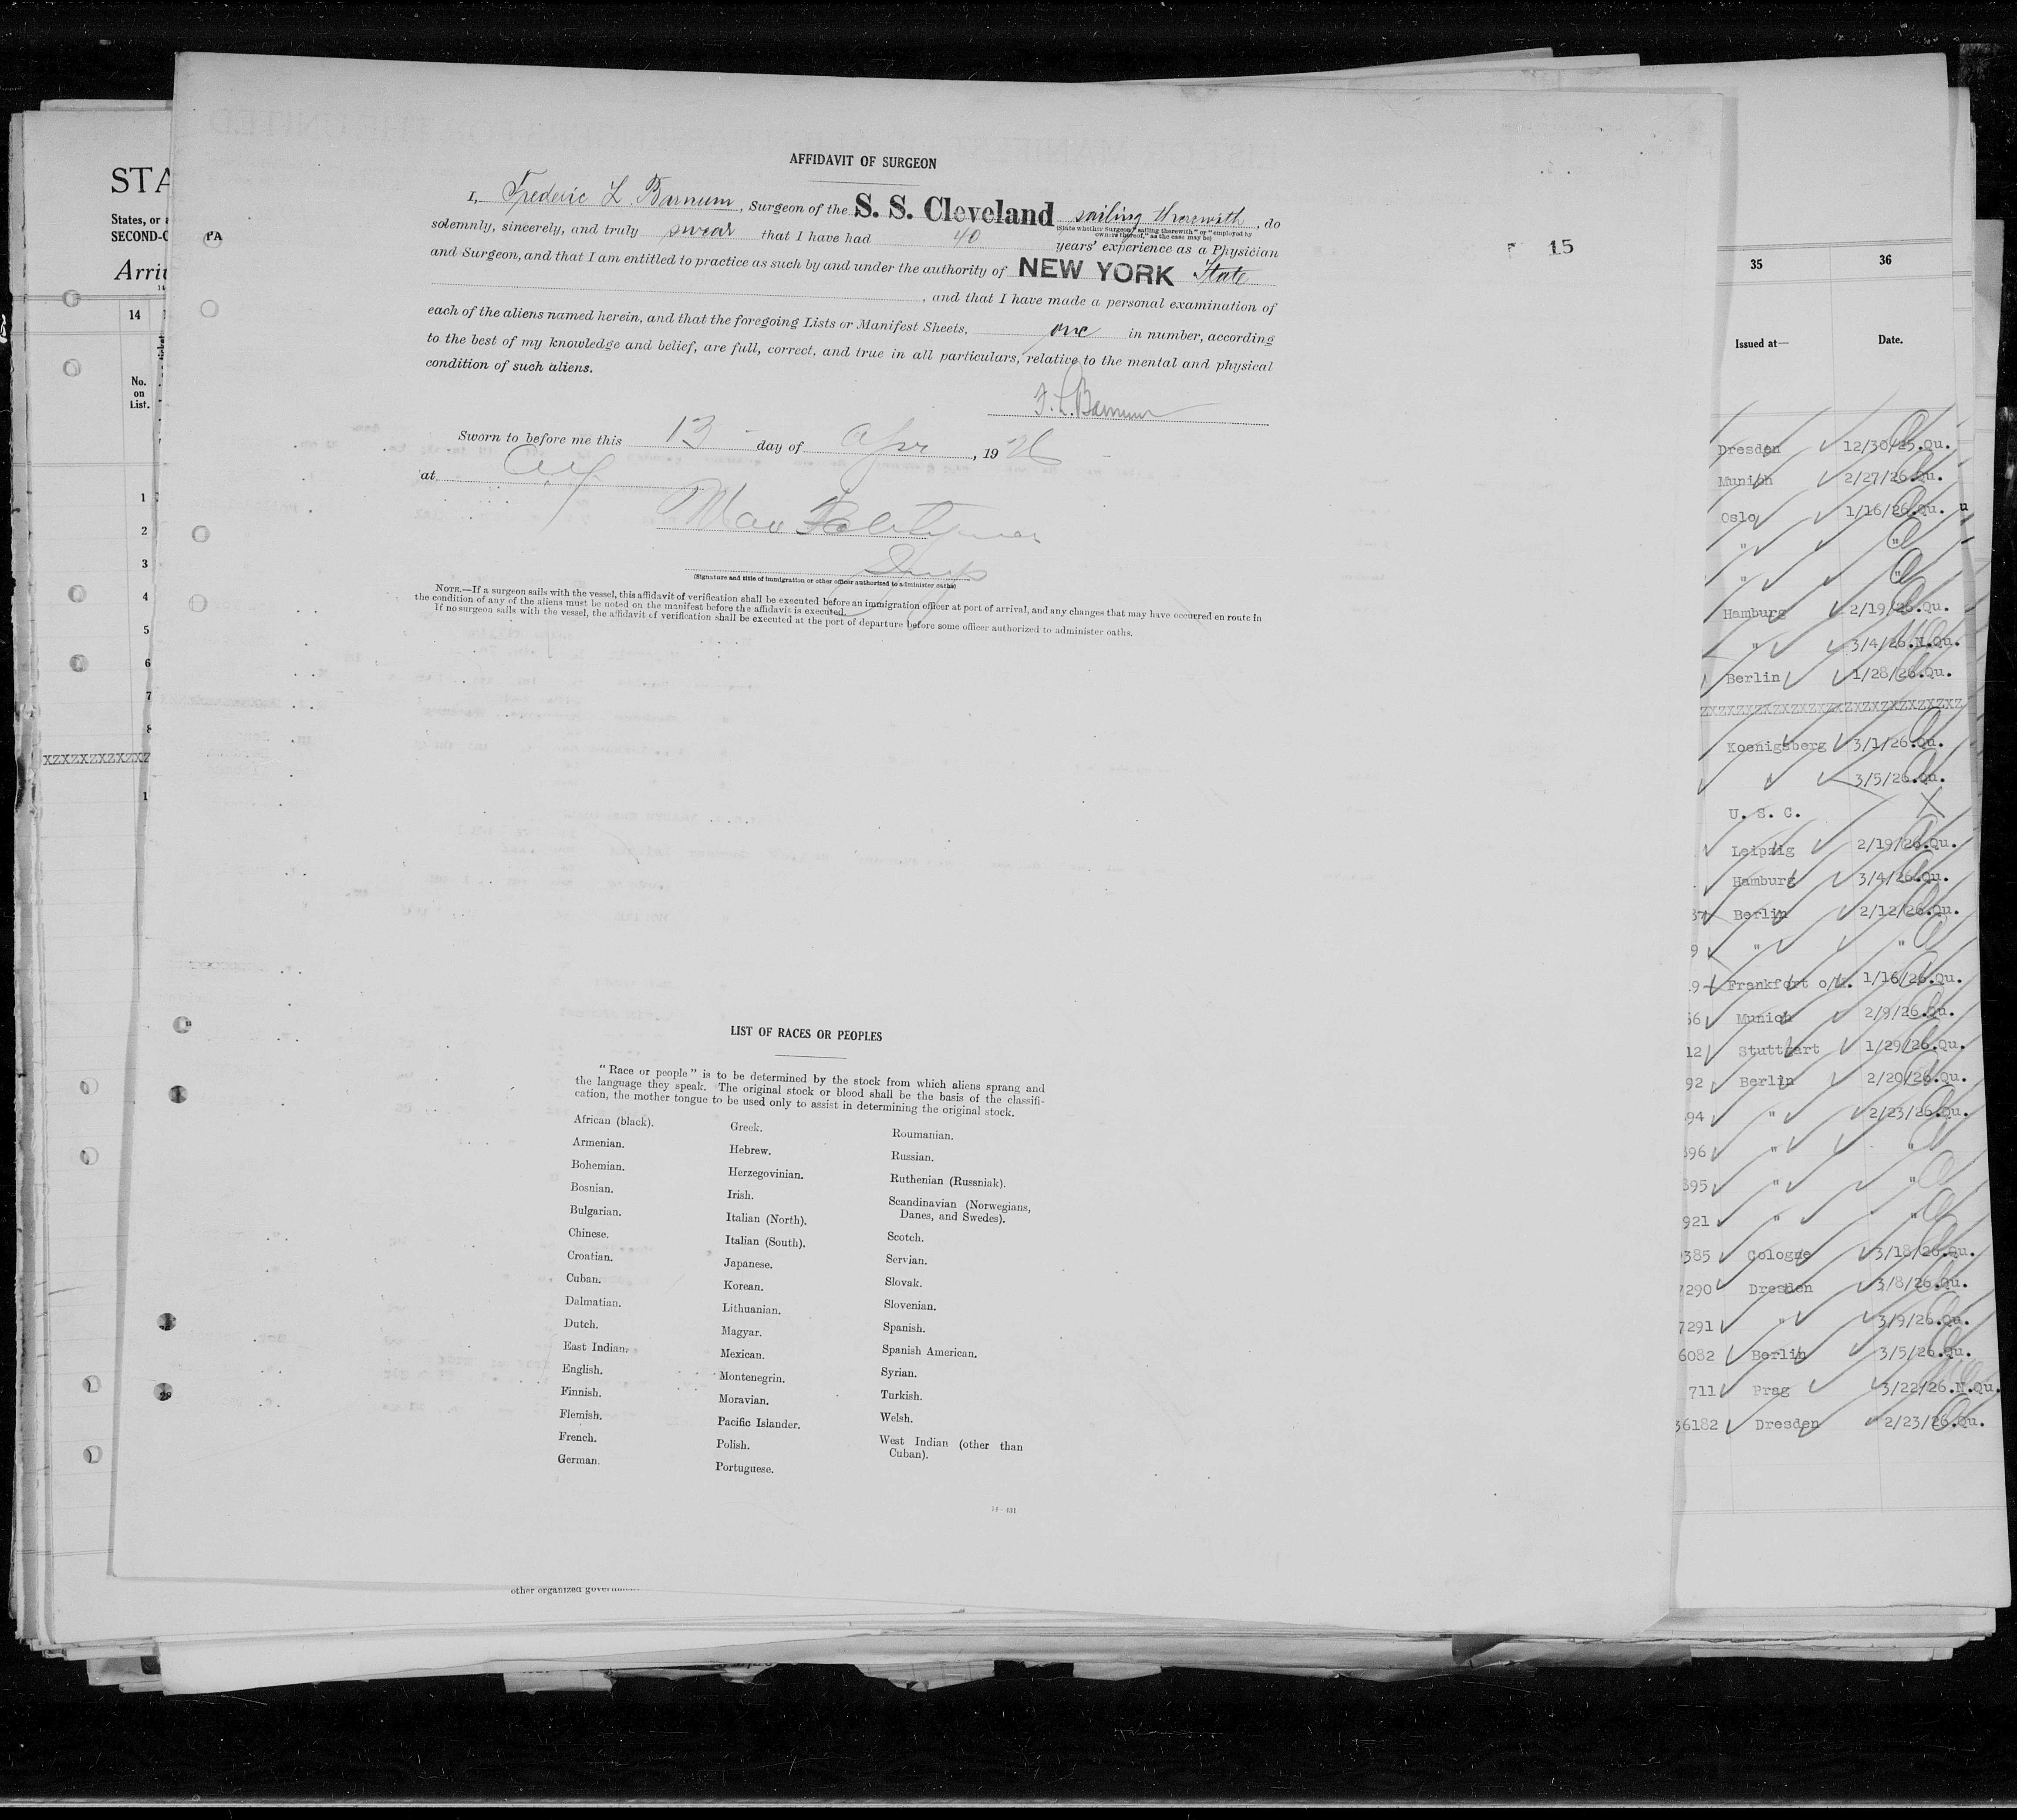 AFFIDAVIT OF SURGEON
I, Frederic L. Barnum, Surgeon of the S. S. Cleveland sailing therewith, do
(State whether Surgeon "sailing therewith" or "employed by
owners thereof," as the case may be)
solemnly, sincerely, and truly swear that I have had 40 years' experience as a Physician
and Surgeon, and that I am entitled to practice as such by and under the authority of NEW YORK State
, and that I have made a personal examination of
each of the aliens named herein, and that the foregoing Lists or Manifest Sheets, one in number, according
to the best of my knowledge and belief, are full, correct, and true in all particulars, relative to the mental and physical
condition of such aliens.
F. L. Barnum
Sworn to before me this 13 day of Apr, 1926
at
Max
Insp
(Signature and title of immigration or other officer authorized to administer oaths)
NOTE.—If a surgeon sails with the vessel, this affidavit of verification shall be executed before an immigration officer at port of arrival, and any changes that may have occurred en route in
the condition of any of the aliens must be noted on the manifest before the affidavit is executed.
If no surgeon sails with the vessel, the affidavit of verification shall be executed at the port of departure before some officer authorized to administer oaths.
LIST OF RACES OR PEOPLES
"Race or people" is to be determined by the stock from which aliens sprang and
the language they speak. The original stock or blood shall be the basis of the classifi-
cation, the mother tongue to be used only to assist in determining the original stock.
African (black).
Armenian.
Bohemian.
Bosnian.
Bulgarian.
Chinese.
Croatian.
Cuban.
Dalmatian.
Dutch.
East Indian.
English.
Finnish.
Flemish.
French.
German.
Greek.
Hebrew.
Herzegovinian.
Irish.
Italian (North).
Italian (South).
Japanese.
Korean.
Lithuanian.
Magyar.
Mexican.
Montenegrin.
Moravian.
Pacific Islander.
Polish.
Portuguese.
Roumanian.
Russian.
Ruthenian (Russniak).
Scandinavian (Norwegians,
Danes, and Swedes).
Scotch.
Servian.
Slovak.
Slovenian.
Spanish.
Spanish American.
Syrian.
Turkish.
Welsh.
West Indian (other than
Cuban).
14—431
other organized
STA
States, or
SECOND-C
Arri
PA
14
No.
on
List.
1
2
3
4
5
6
7
8
XZXZXZXZXZXZXZ
1
29
15
35 36
Issued at— Date.
Dresden 12/30/25.Qu.
Munich 2/27/26.Qu.
Oslo 1/16/26.Qu.
" "
" "
Hamburg 2/19/26.Qu.
" 3/4/26.N.Qu.
Berlin 1/28/26.Qu.
ZXZXZXZXZXZXZXZXZXZXZXZXZXZXZ
Koenigsberg 3/1/26.Qu.
" 3/5/26.Qu.
U. S. C.
Leipzig 2/19/26.Qu.
Hamburg 3/4/26.Qu.
37 Berlin 2/12/26.Qu.
9 " "
9 Frankfort o/M. 1/16/26.Qu.
56 Munich 2/9/26.Qu.
12 Stuttgart 1/29/26.Qu.
92 Berlin 2/20/26.Qu.
94 " 2/23/26.Qu.
396 " "
395 " "
921 " "
385 Cologne 3/18/26.Qu.
7290 Dresden 3/8/26.Qu.
7291 " 3/9/26.Qu.
6082 Berlin 3/5/26.Qu.
711 Prag 3/22/26.N.Qu.
36182 Dresden 2/23/26.Qu.